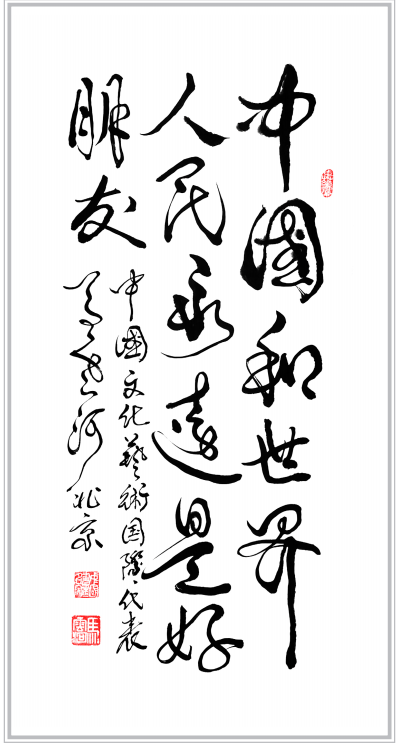 中國和世界
人民永遠是好
朋友
中國文化藝術国際代表
北京